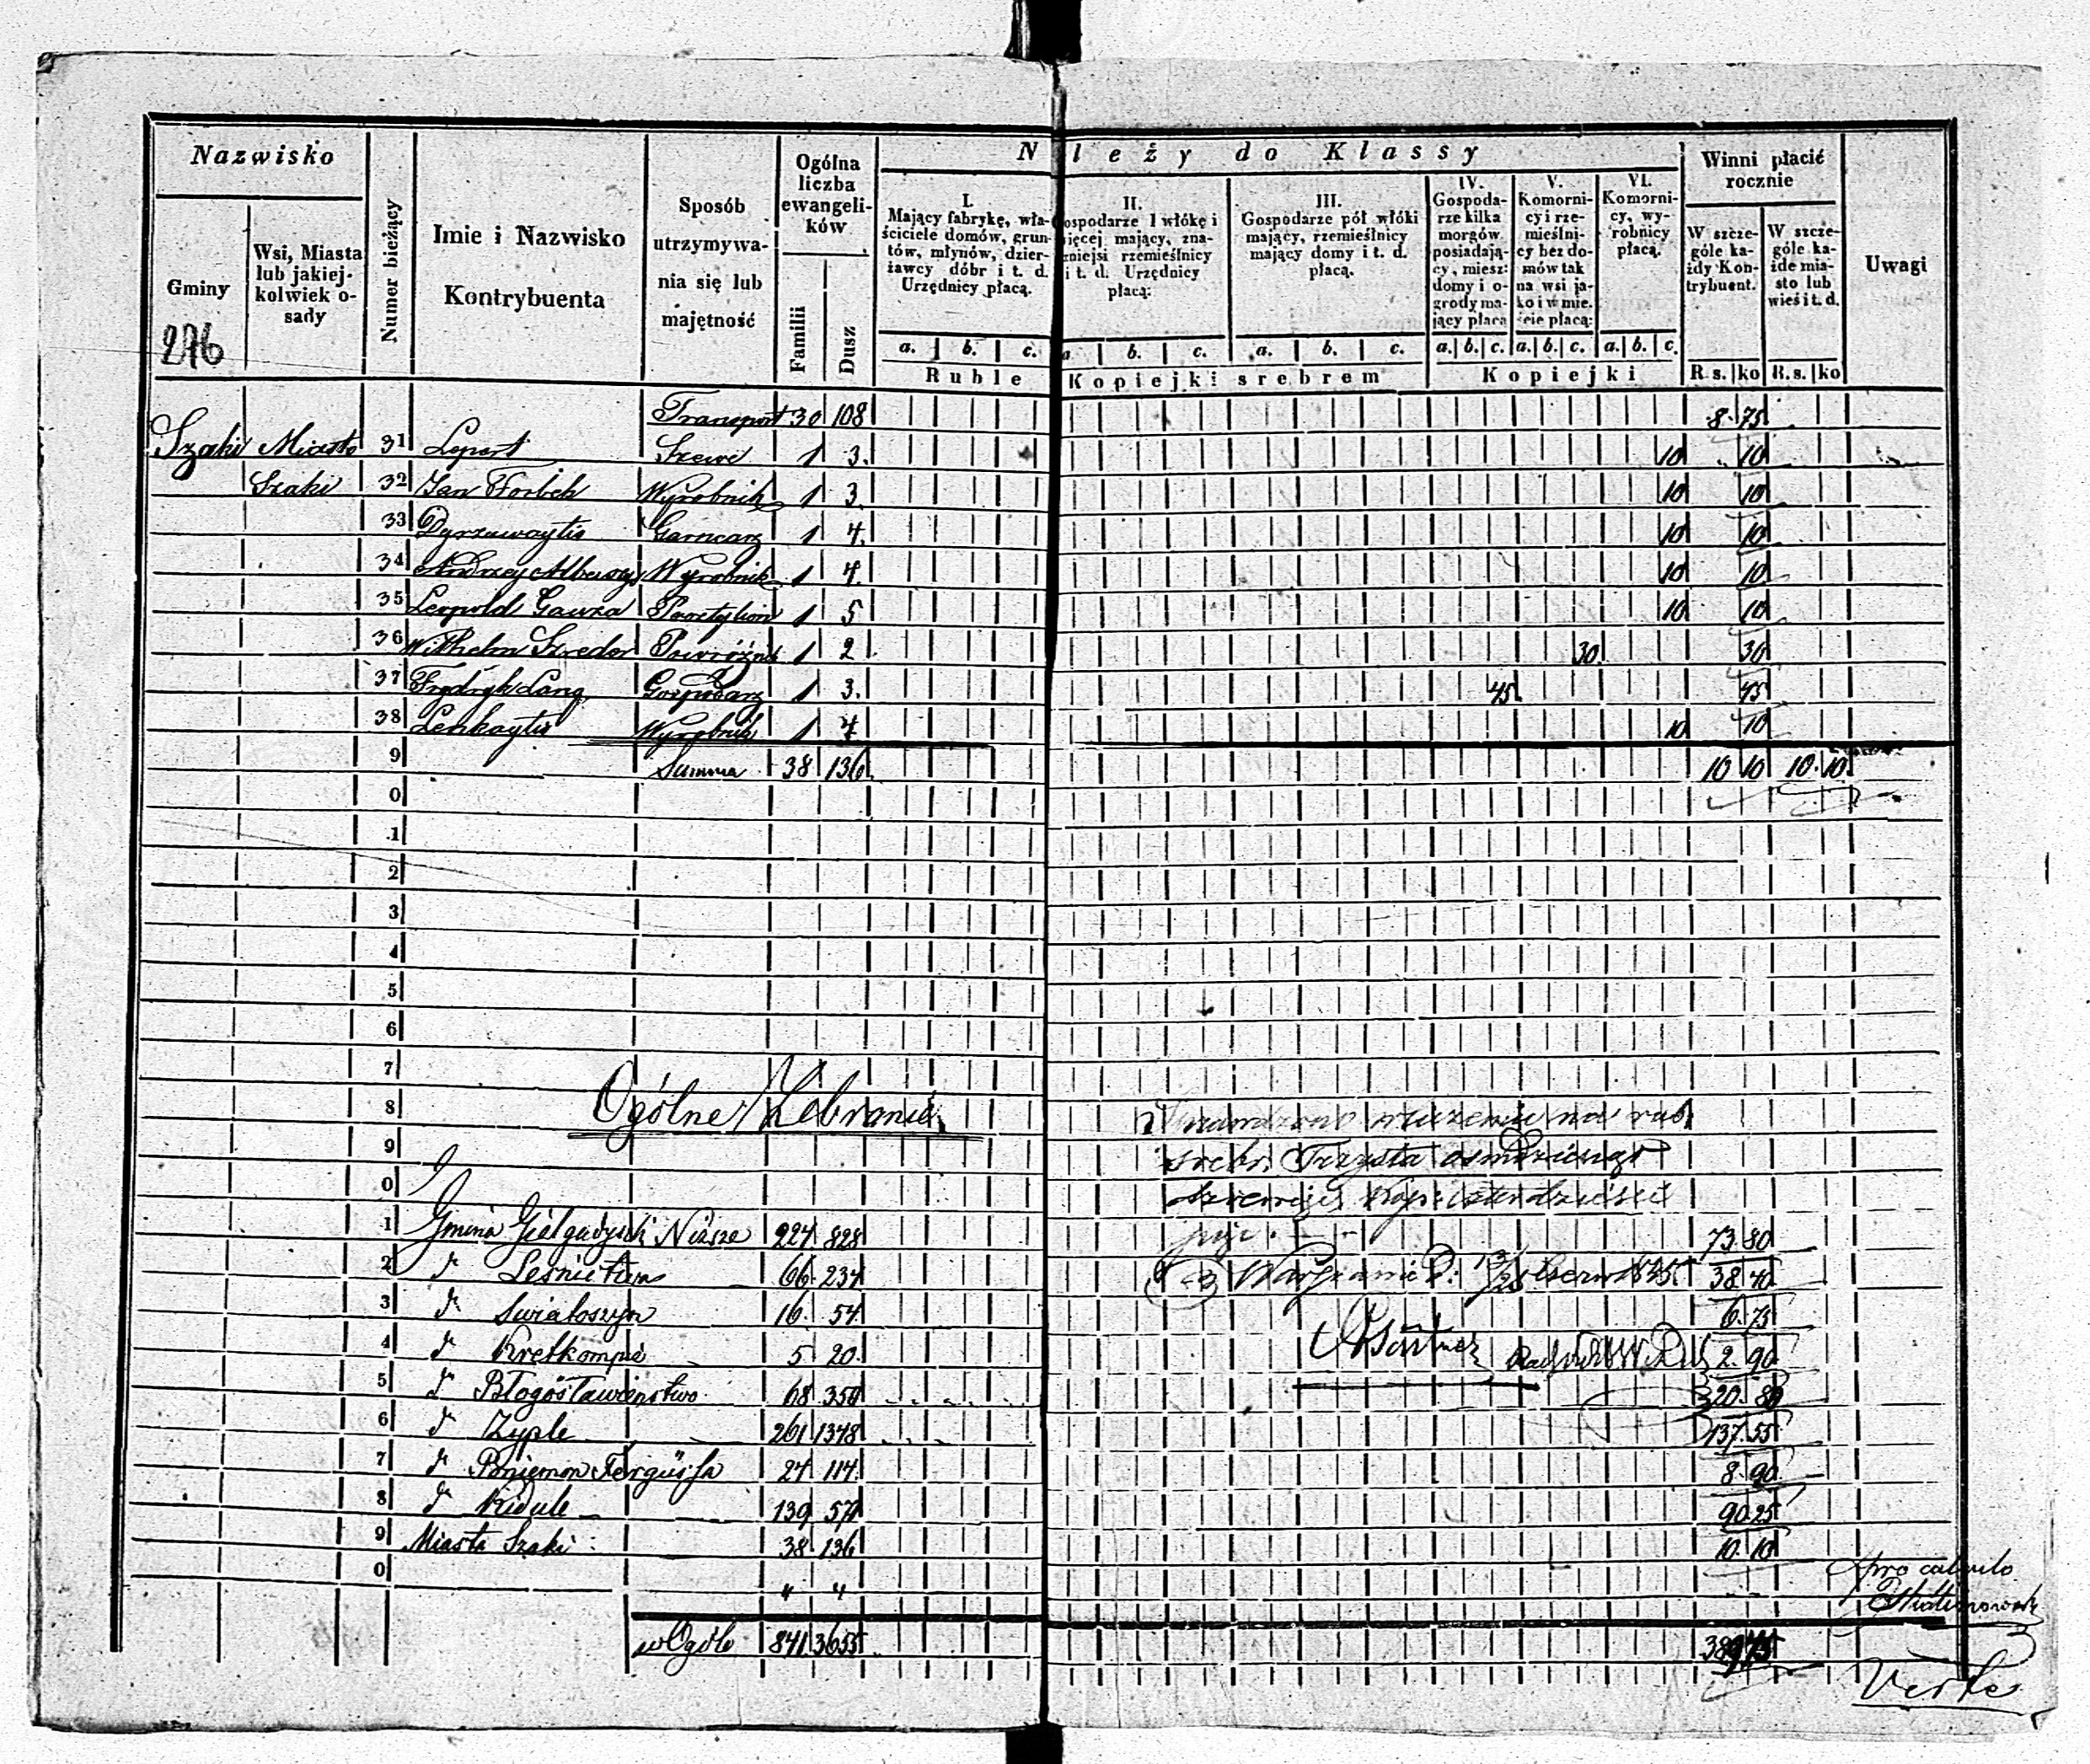 Nazwisko
Gminy
Wsi, Miasta lub jakiej- kolwiek o- sady
Numer bieżący
Imie i Nazwisko Kontrybuenta
Sposób utrzymywa- nia się lub majętność
Ogólna liczba ewangeli- ków
Familii
Dusz
N leży do Klassy
I. Mający fabrykę, wła- ściciele domów, grun- tów, młynów, dzier- żawcy dóbr i t. d. Urzędnicy płacą.
II. ospodarze 1 włókę i ięcej mający, zna- zniejsi rzemieślnicy i t. d. Urzędnicy płacą:
III. Gospodarze pół włóki mający, rzemieślnicy mający domy i t. d. płacą.
IV. Gospoda- rze kilka morgów posiadają- cy, miesz: domy i o- grody ma- jący płacą
V. Komorni- cy i rze- mieślni- cy bez do- mów tak na wsi ja- ko i w mie- ście płacą:
VI. Komorni- cy, wy- robnicy płacą.
Winni płacić rocznie
W szcze- góle ka- żdy Kon- trybuent.
W szcze- góle ka- żde mia- sto lub wieś i t. d.
Uwagi
a. b. c. a. b. c. a. b. c. a. b. c. a. b. c. a. b. c.
Ruble Kopiejki srebrem Kopiejki R s. ko R. s. ko
276
Transport 30 108 8 75
Szaki Miasto 31 Lepert Szewc 1 3. 10 10
Szaki 32 Jan Forbek Wyrobnik 1 3. 10 10
33 Garncarz 1 4. 10 10
34 Andrzey Wyrobnik 1 4. 10 10
35 Leopold Gawza 1 5 10 10
36 Wilhelm Szreder 1 2 30. 30
37 Frydryk Lang Gospodarz 1 3. 45. 45
38 Lenkaytis Wyrobnik 1 4 10 10
9 Summa 38 136. 10 10 10. 10.
0
1
2
3
4
5
6
7
8 Ogólne Zebranie
9
0
1 Gmina Giełgudyszki Niższe 224 828 73 80
2 d° Leśnictwo 66. 234 38 40
3 d° Swiatoszyn 16. 54. 6. 75
4 d° Kretkompie 5 20. 2. 90
5 d° Błogosławieństwo 68 350 20. 80
6 d° Zyple 261 1348 137. 55
7 d° Poniemon Fergüssa 24 114. 8. 90
8 d° Kidule 139 571 90. 25
9 Miasta Szaki 38 136 10. 10
0 " "
w Ogóle 841. 3655
srebr. Trzysta osmdziesiąt
Kop: czterdzieści
pro calculo